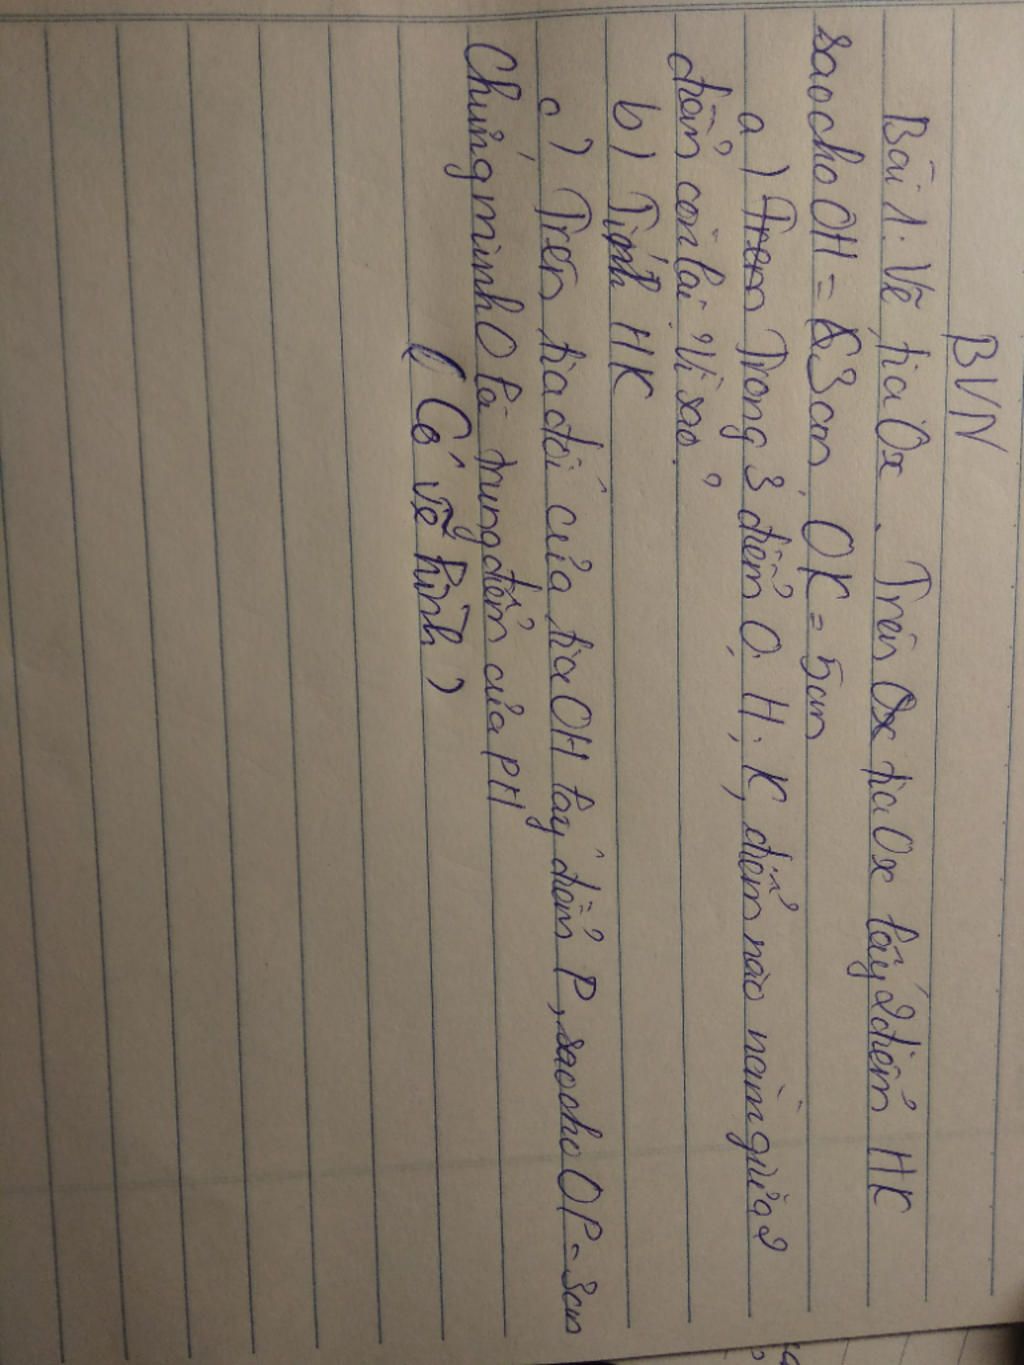 BVN
Bài 1. Vẽ tia Ox. Trên Ox tia Ox lấy 2 điểm HK
sao cho OH = 3cm, OK = 5cm
a) Trem Trong 3 điểm O, H, K, điểm nào nằm giữa 2
điểm còn lại, Vì sao?
b) Tính HK
c) Trên tia đối của tia OH lấy điểm P, sao cho OP = 3cm
Chứng minh O là trung điểm của PH
( Có vẽ hình )